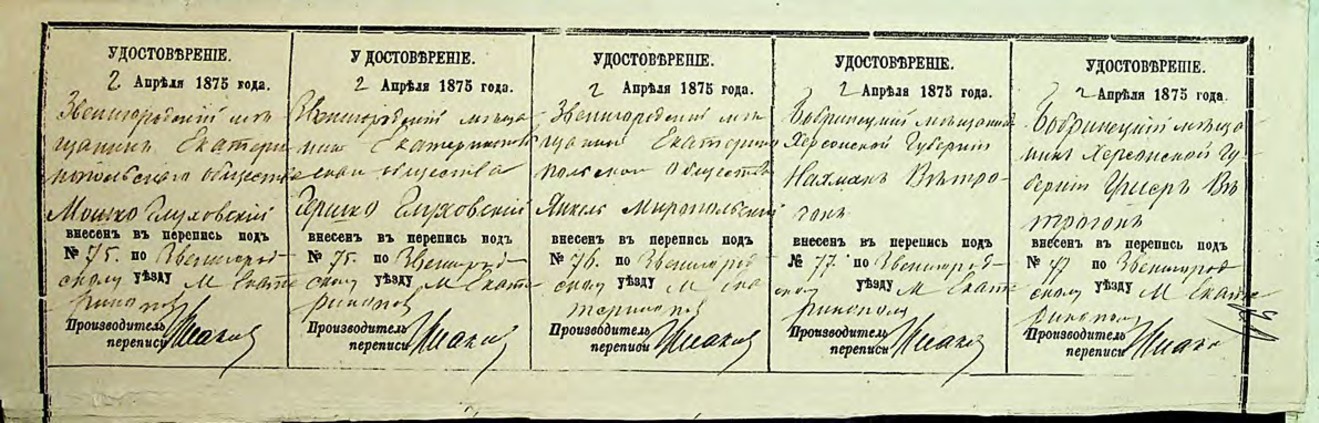 УДОСТОВѢРЕНІЕ.
2 Апрѣля 1875 года.
Звенигородскій мѣ
щанинъ Екатери
нопольскаго обществ
Мошко Глуховскій
внесенъ въ перепись подъ
№ 75. по Звенигород
скому уѣзду М Екате
ринопол
Производитель
переписи
УДОСТОВѢРЕНІЕ.
2 Апрѣля 1875 года.
Звенигородскій мѣща
нинъ Екатеринополь
скаго общества
Гершко Глуховскій
внесенъ въ перепись подъ
№ 75. по Звенигород
скому уѣзду М Екате
ринопол
Производитель
переписи
УДОСТОВѢРЕНІЕ.
2 Апрѣля 1875 года.
Звенигородскій мѣ
щанинъ Екатерино
польскаго Общества
Янкель Миропольскій
внесенъ въ перепись подъ
№ 76. по Звенигород
скому уѣзду М Ека
теринопол
Производитель
переписи
УДОСТОВѢРЕНІЕ.
2 Апрѣля 1875 года.
Бобринецкій мѣщанинъ
Херсонской Губерніи
Нахманъ Вѣтро
гонъ
внесенъ въ перепись подъ
№ 77. по Звенигород
скому уѣзду М Екате
ринополю
Производитель
переписи
УДОСТОВѢРЕНІЕ.
2 Апрѣля 1875 года.
Бобринецкій мѣща
нинъ Херсонской Гу
берніи Ушеръ Вѣ
трогонъ
внесенъ въ перепись подъ
№ 77 по Звенигород
скому уѣзду М Екате
ринополю
Производитель
переписи